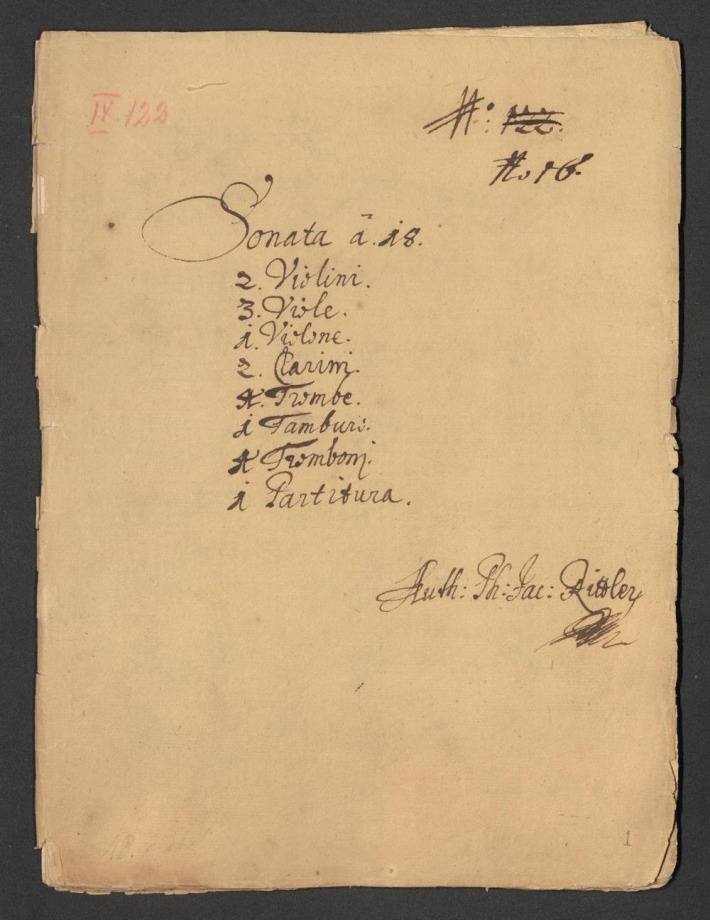 IX. 122
N.º: 122.
No 16.
Sonata â. 18.
2. Violini.
3. Viole.
1. Violone.
2. Clarini.
4. Trombe.
1 Tamburo.
4 Tromboni.
1 Partitura.
Auth: Ph: Jac: Rittler
1